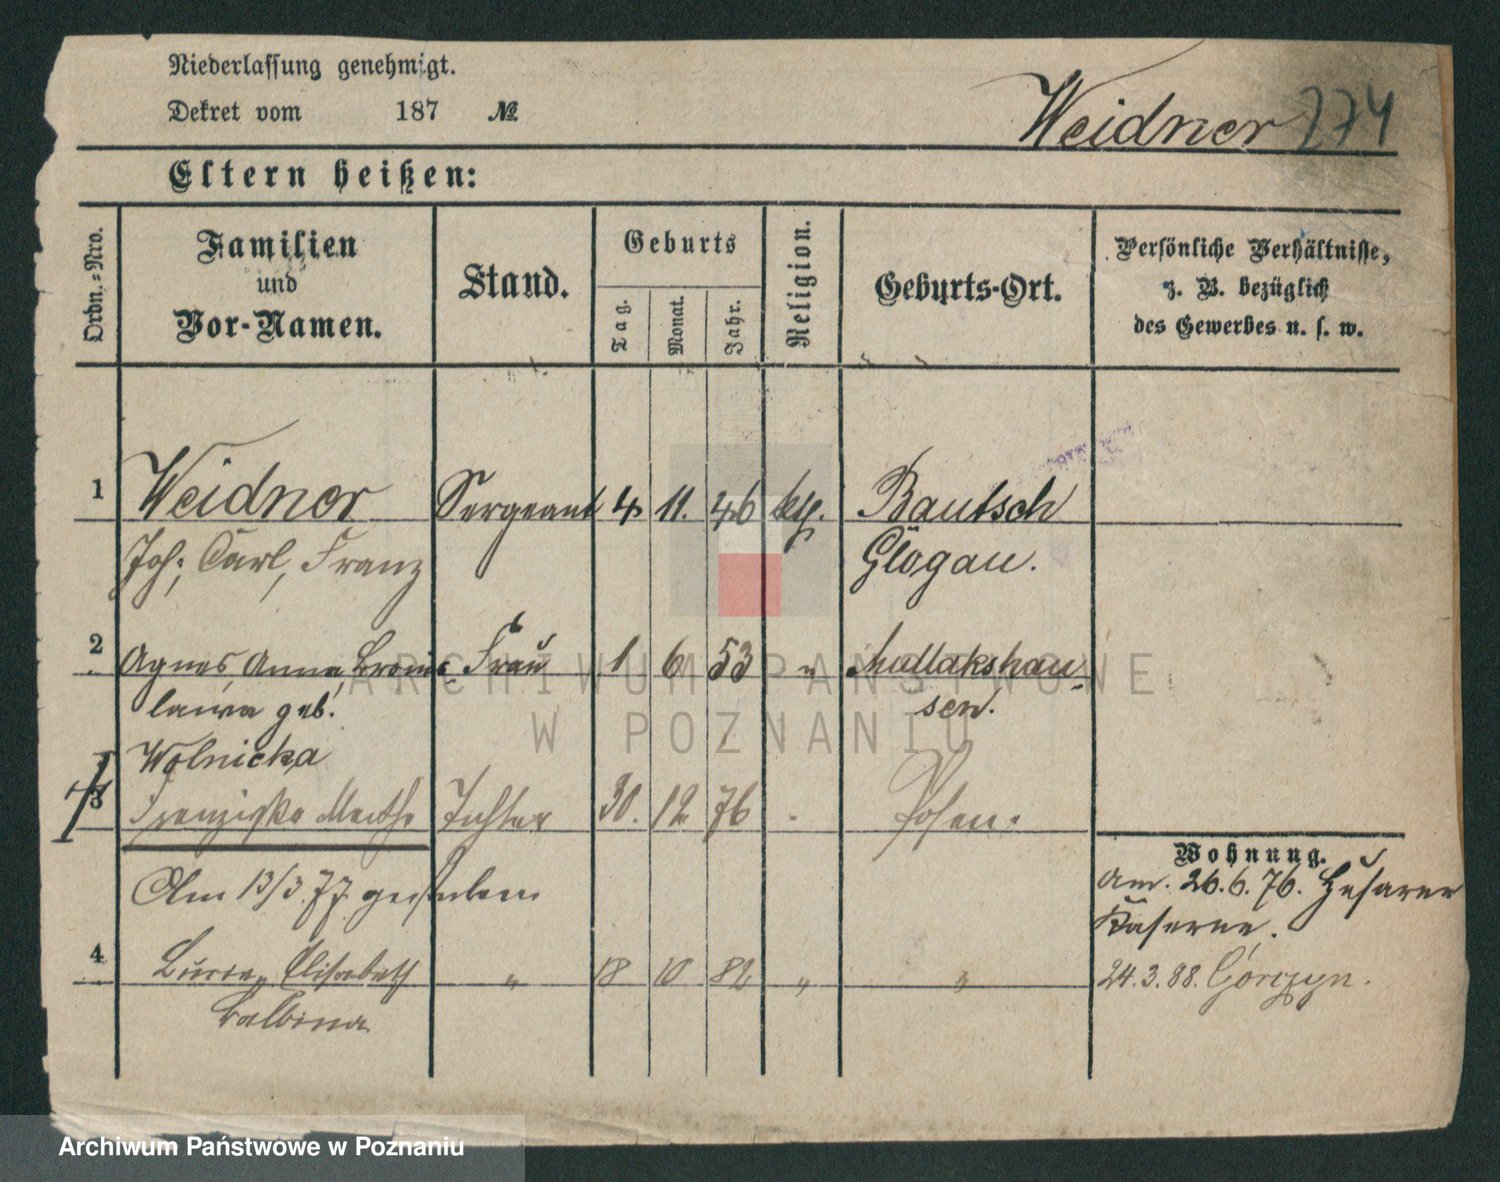 Niederlassung genehmigt.
Dekret vom 187 №
Weidner 274
Eltern heißen:
Ordn.-Nro.
Familien und Vor-Namen.
Stand.
Geburts
Tag.
Monat.
Jahr.
Religion.
Geburts-Ort.
Persönliche Verhältnisse,
z. B. bezüglich
des Gewerbes u. s. w.
1 Weidner Sergeant 4 11. 46 kth. Bautsch
Joh; Carl, Franz Glogau.
2 Agnes, Anna, Bronis Frau 1 6 53 "
lawa geb. sen.
Wolnicka
3 Franziska Martha Tochter 30. 12 76 " Posen.
Wohnung.
Am 13/3 77 gestorben
am. 26.6.76. Husaren
Kaserne.
4 Elisabeth " 18 10 82 " "
Balbina
24.3.88. Gorczyn.
ARCHIWUM PAŃSTWOWE
W POZNANIU
Archiwum Państwowe w Poznaniu